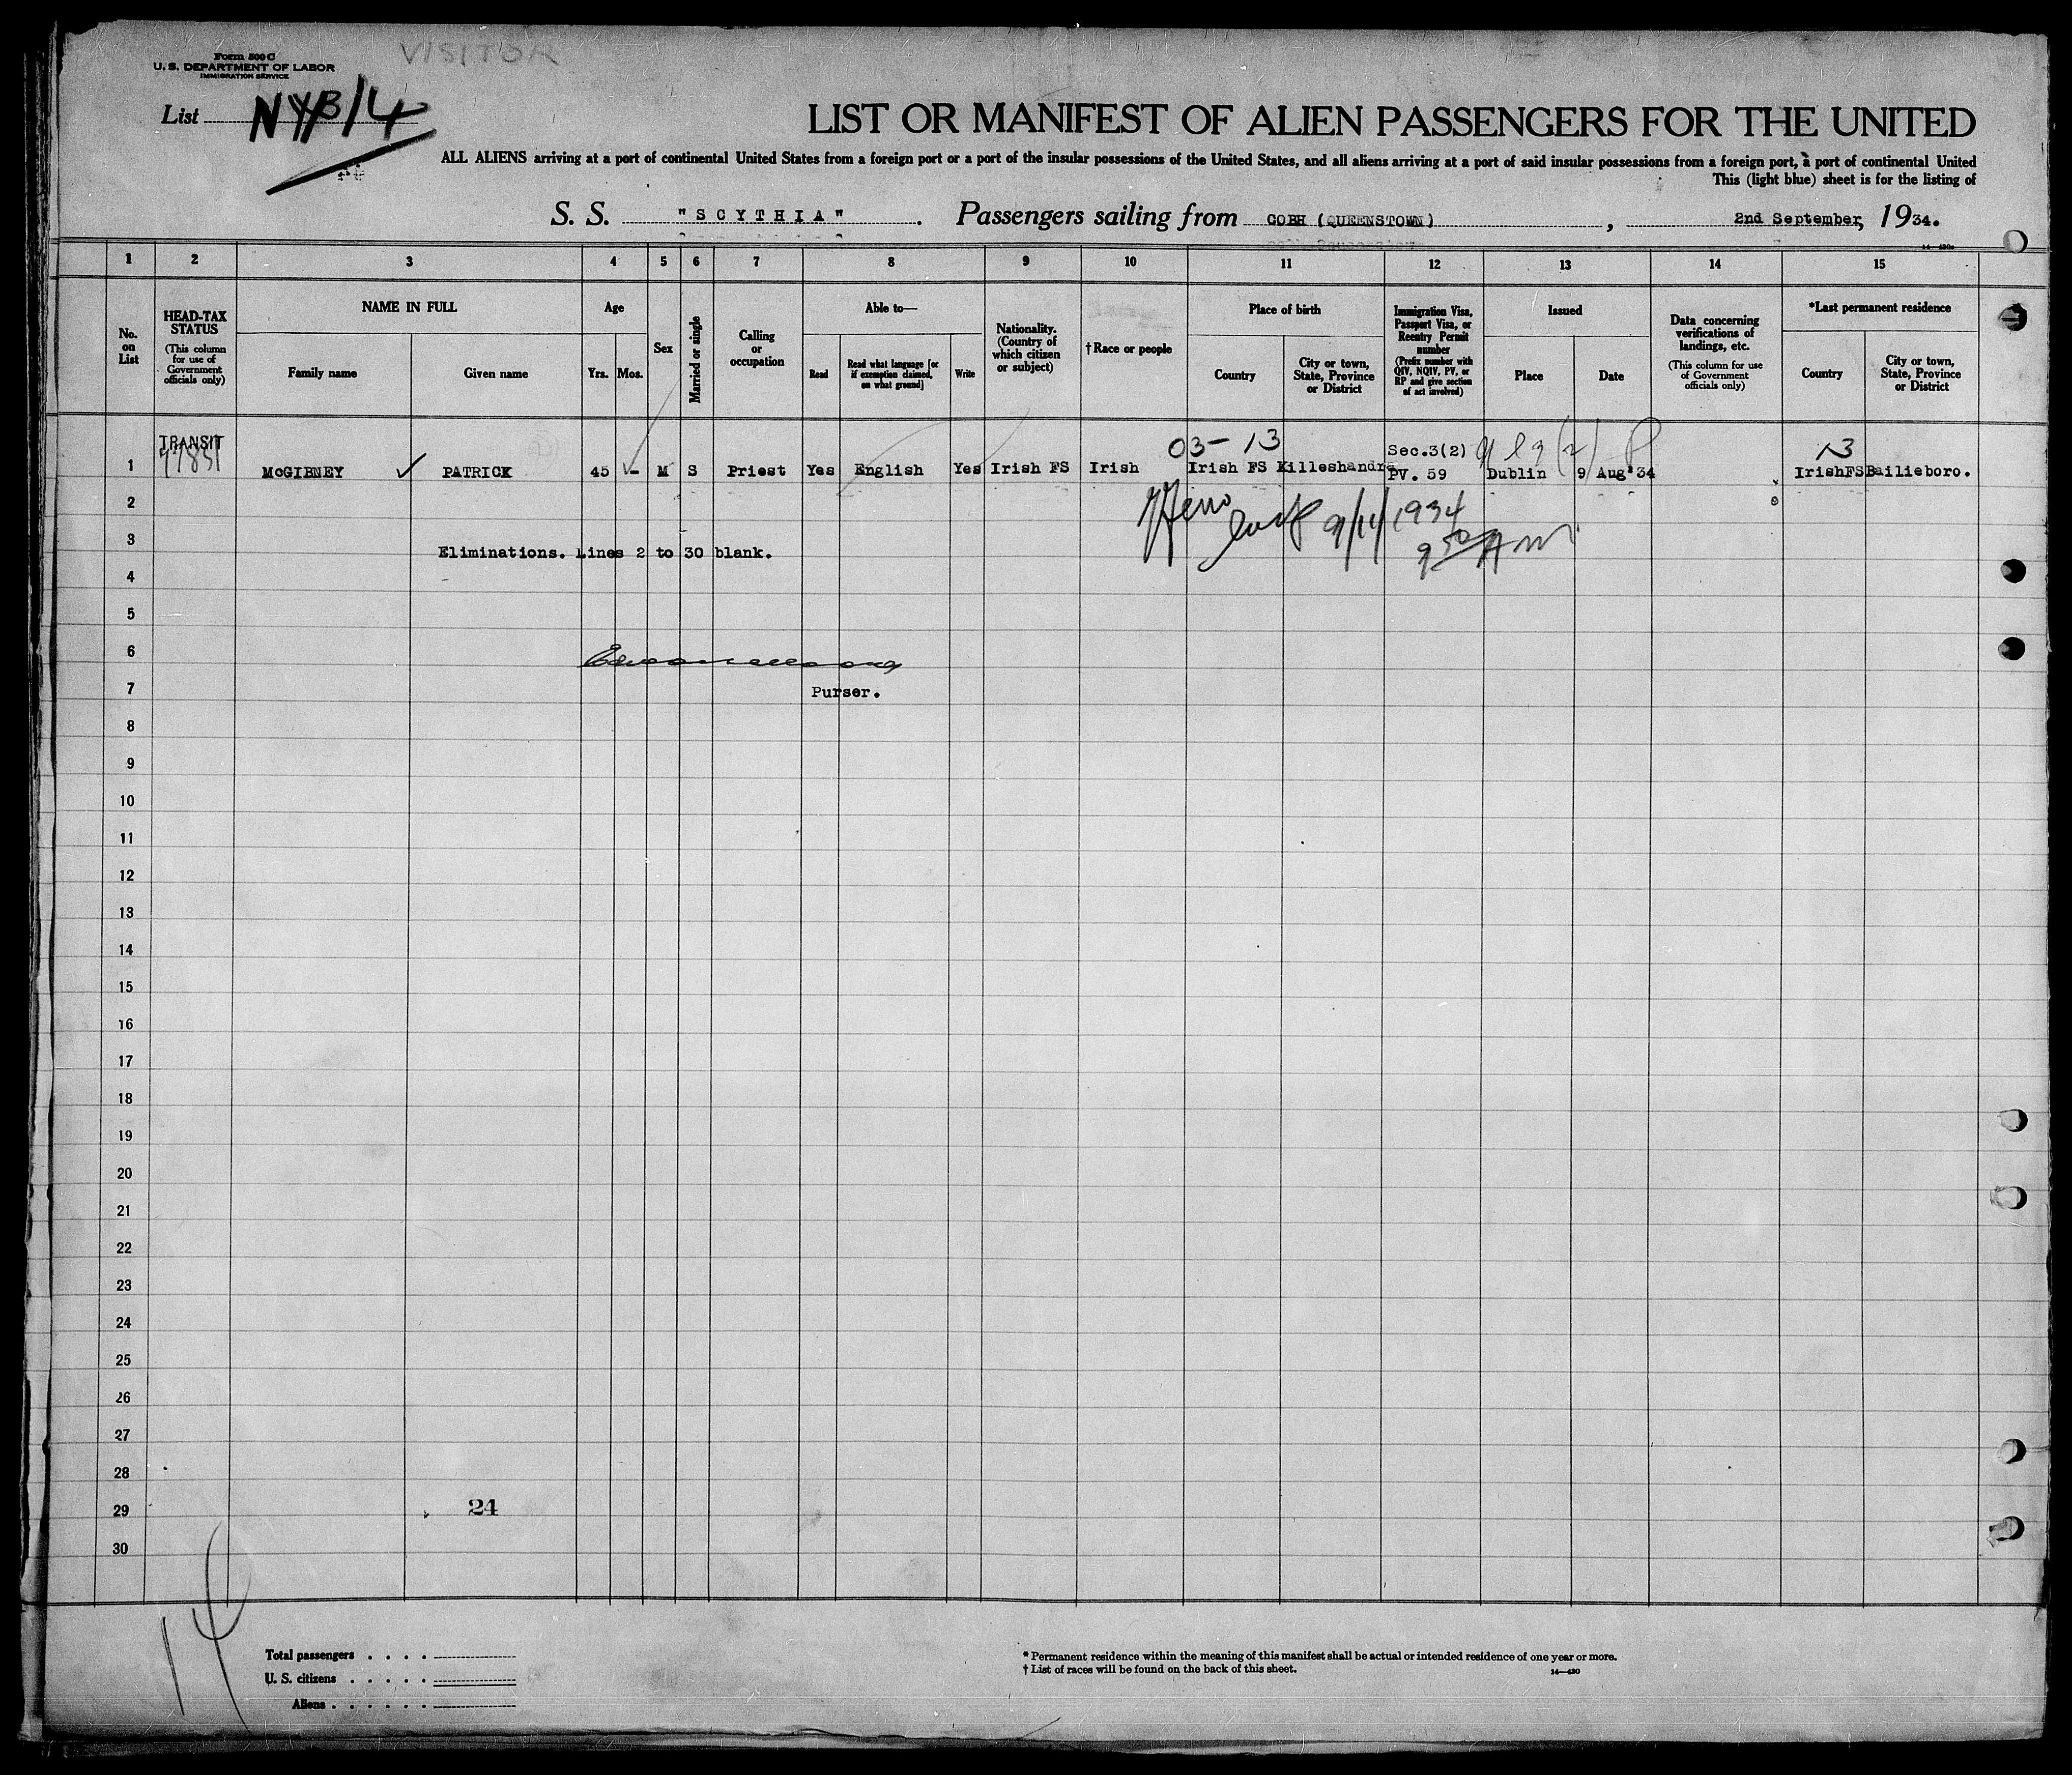 VISITOR
Form 500 C
U. S. DEPARTMENT OF LABOR
IMMIGRATION SERVICE
List NYB/14
LIST OR MANIFEST OF ALIEN PASSENGERS FOR THE UNITED
ALL ALIENS arriving at a port of continental United States from a foreign port or a port of the insular possessions of the United States, and all aliens arriving at a port of said insular possessions from a foreign port, a port of continental United
This (light blue) sheet is for the listing of
S. S. "SCYTHIA". Passengers sailing from COBH (QUEENSTOWN), 2nd September, 1934.
1 2 3 4 5 6 7 8 9 10 11 12 13 14 15
No. on List
HEAD-TAX STATUS
(This column for use of Government officials only)
NAME IN FULL
Family name
Given name
Age
Yrs. Mos.
Sex
Married or single
Calling or occupation
Able to—
Read
Read what language [or if exemption claimed, on what ground]
Write
Nationality. (Country of which citizen or subject)
†Race or people
Place of birth
Country
City or town, State, Province or District
Immigration Visa, Passport Visa, or Reentry Permit number
(Prefix number with QIV, NQIV, PV, or RP and give section of act involved)
Issued
Place
Date
Data concerning verifications of landings, etc.
(This column for use of Government officials only)
*Last permanent residence
Country
City or town, State, Province or District
TRANSIT
03- 13
Sec.3(2)
13
1 McGIBNEY ✓ PATRICK 45 - M S Priest Yes English Yes Irish FS Irish Irish FS Killeshandra PV. 59 Dublin 9 Aug'34 IrishFS Bailieboro.
2
9/11/1934
3 Eliminations. Lines 2 to 30 blank.
9 50 AM
4
5
6
7 Purser.
8
9
10
11
12
13
14
15
16
17
18
19
20
21
22
23
24
25
26
27
28
29 24
30
14
Total passengers . . . .
U. S. citizens . . . . .
Aliens . . . . . .
* Permanent residence within the meaning of this manifest shall be actual or intended residence of one year or more.
† List of races will be found on the back of this sheet.
14—430